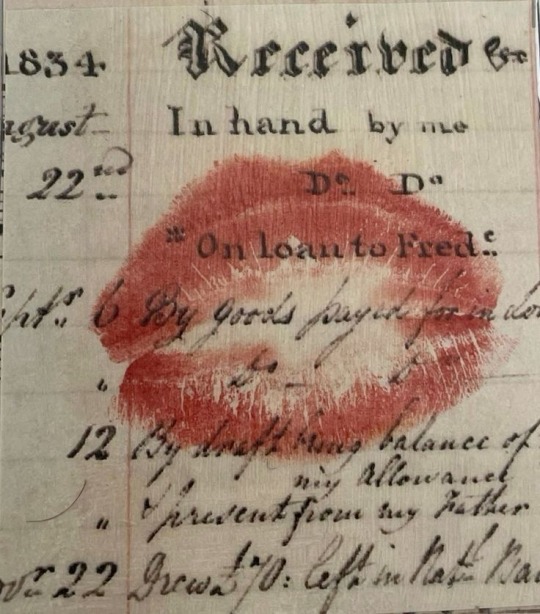 1834 Received &c
August In hand by me
22nd Do. Do
"On loan to Fredc.
Septr. 6 By goods payed for in
" Do
12 By draft being balance of
my Allowance
" & present from my Father
Novr 22 Drew £70: left in Natl.